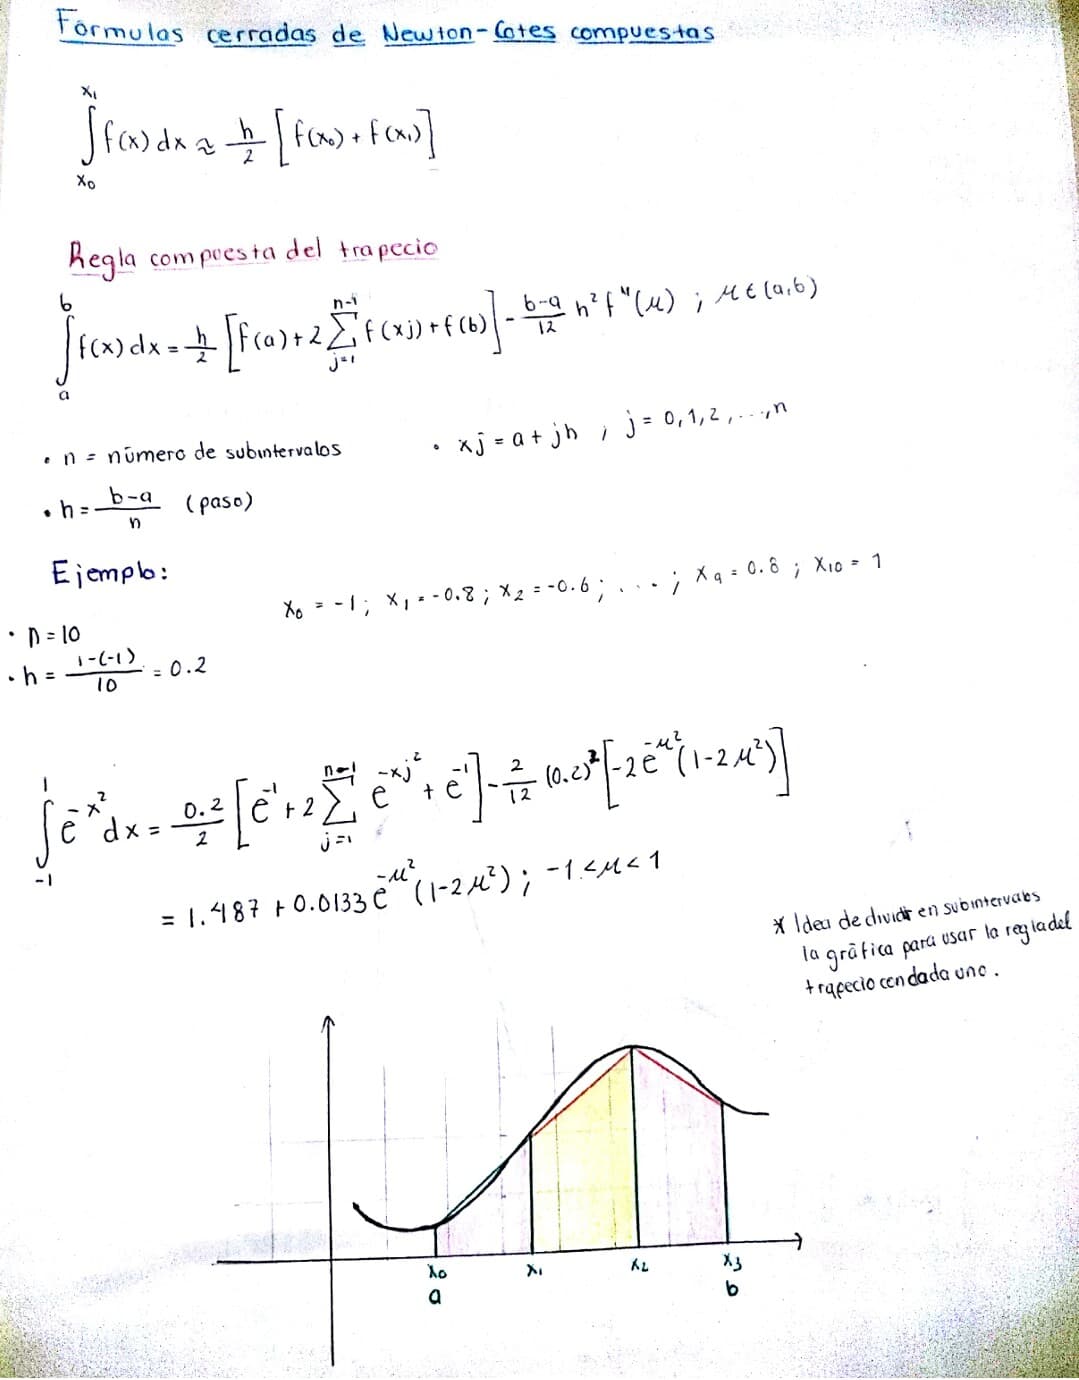 Fórmulas cerradas de Newton-Cotes compuestas
∫_{x₀}^{x₁} f(x) dx ≈ h/2 [f(x₀) + f(x₁)]
Regla compuesta del trapecio
∫_a^b f(x) dx = h/2 [f(a) + 2 ∑_{j=1}^{n-1} f(xj) + f(b)] - (b-a)/12 h² f''(μ) ; μ ∈ (a,b)
• n = número de subintervalos • xj = a + jh ; j = 0,1,2,...,n
• h = (b-a)/n (paso)
Ejemplo:
x₀ = -1; x₁ = -0.8; x₂ = -0.6; ... ; x₉ = 0.8; x₁₀ = 1
• n = 10
• h = (1-(-1))/10 = 0.2
∫_{-1}^{1} e^{-x²} dx = 0.2/2 [e^{-1} + 2 ∑_{j=1}^{n-1} e^{-xj²} + e^{-1}] - 2/12 (0.2)² [-2e^{-μ²}(1-2μ²)]
= 1.487 + 0.0133 e^{-μ²} (1-2μ²); -1<μ<1
* Idea de dividir en subintervalos
la gráfica para usar la regla del
trapecio con dada uno.
x₀ x₁ x₂ x₃
a b